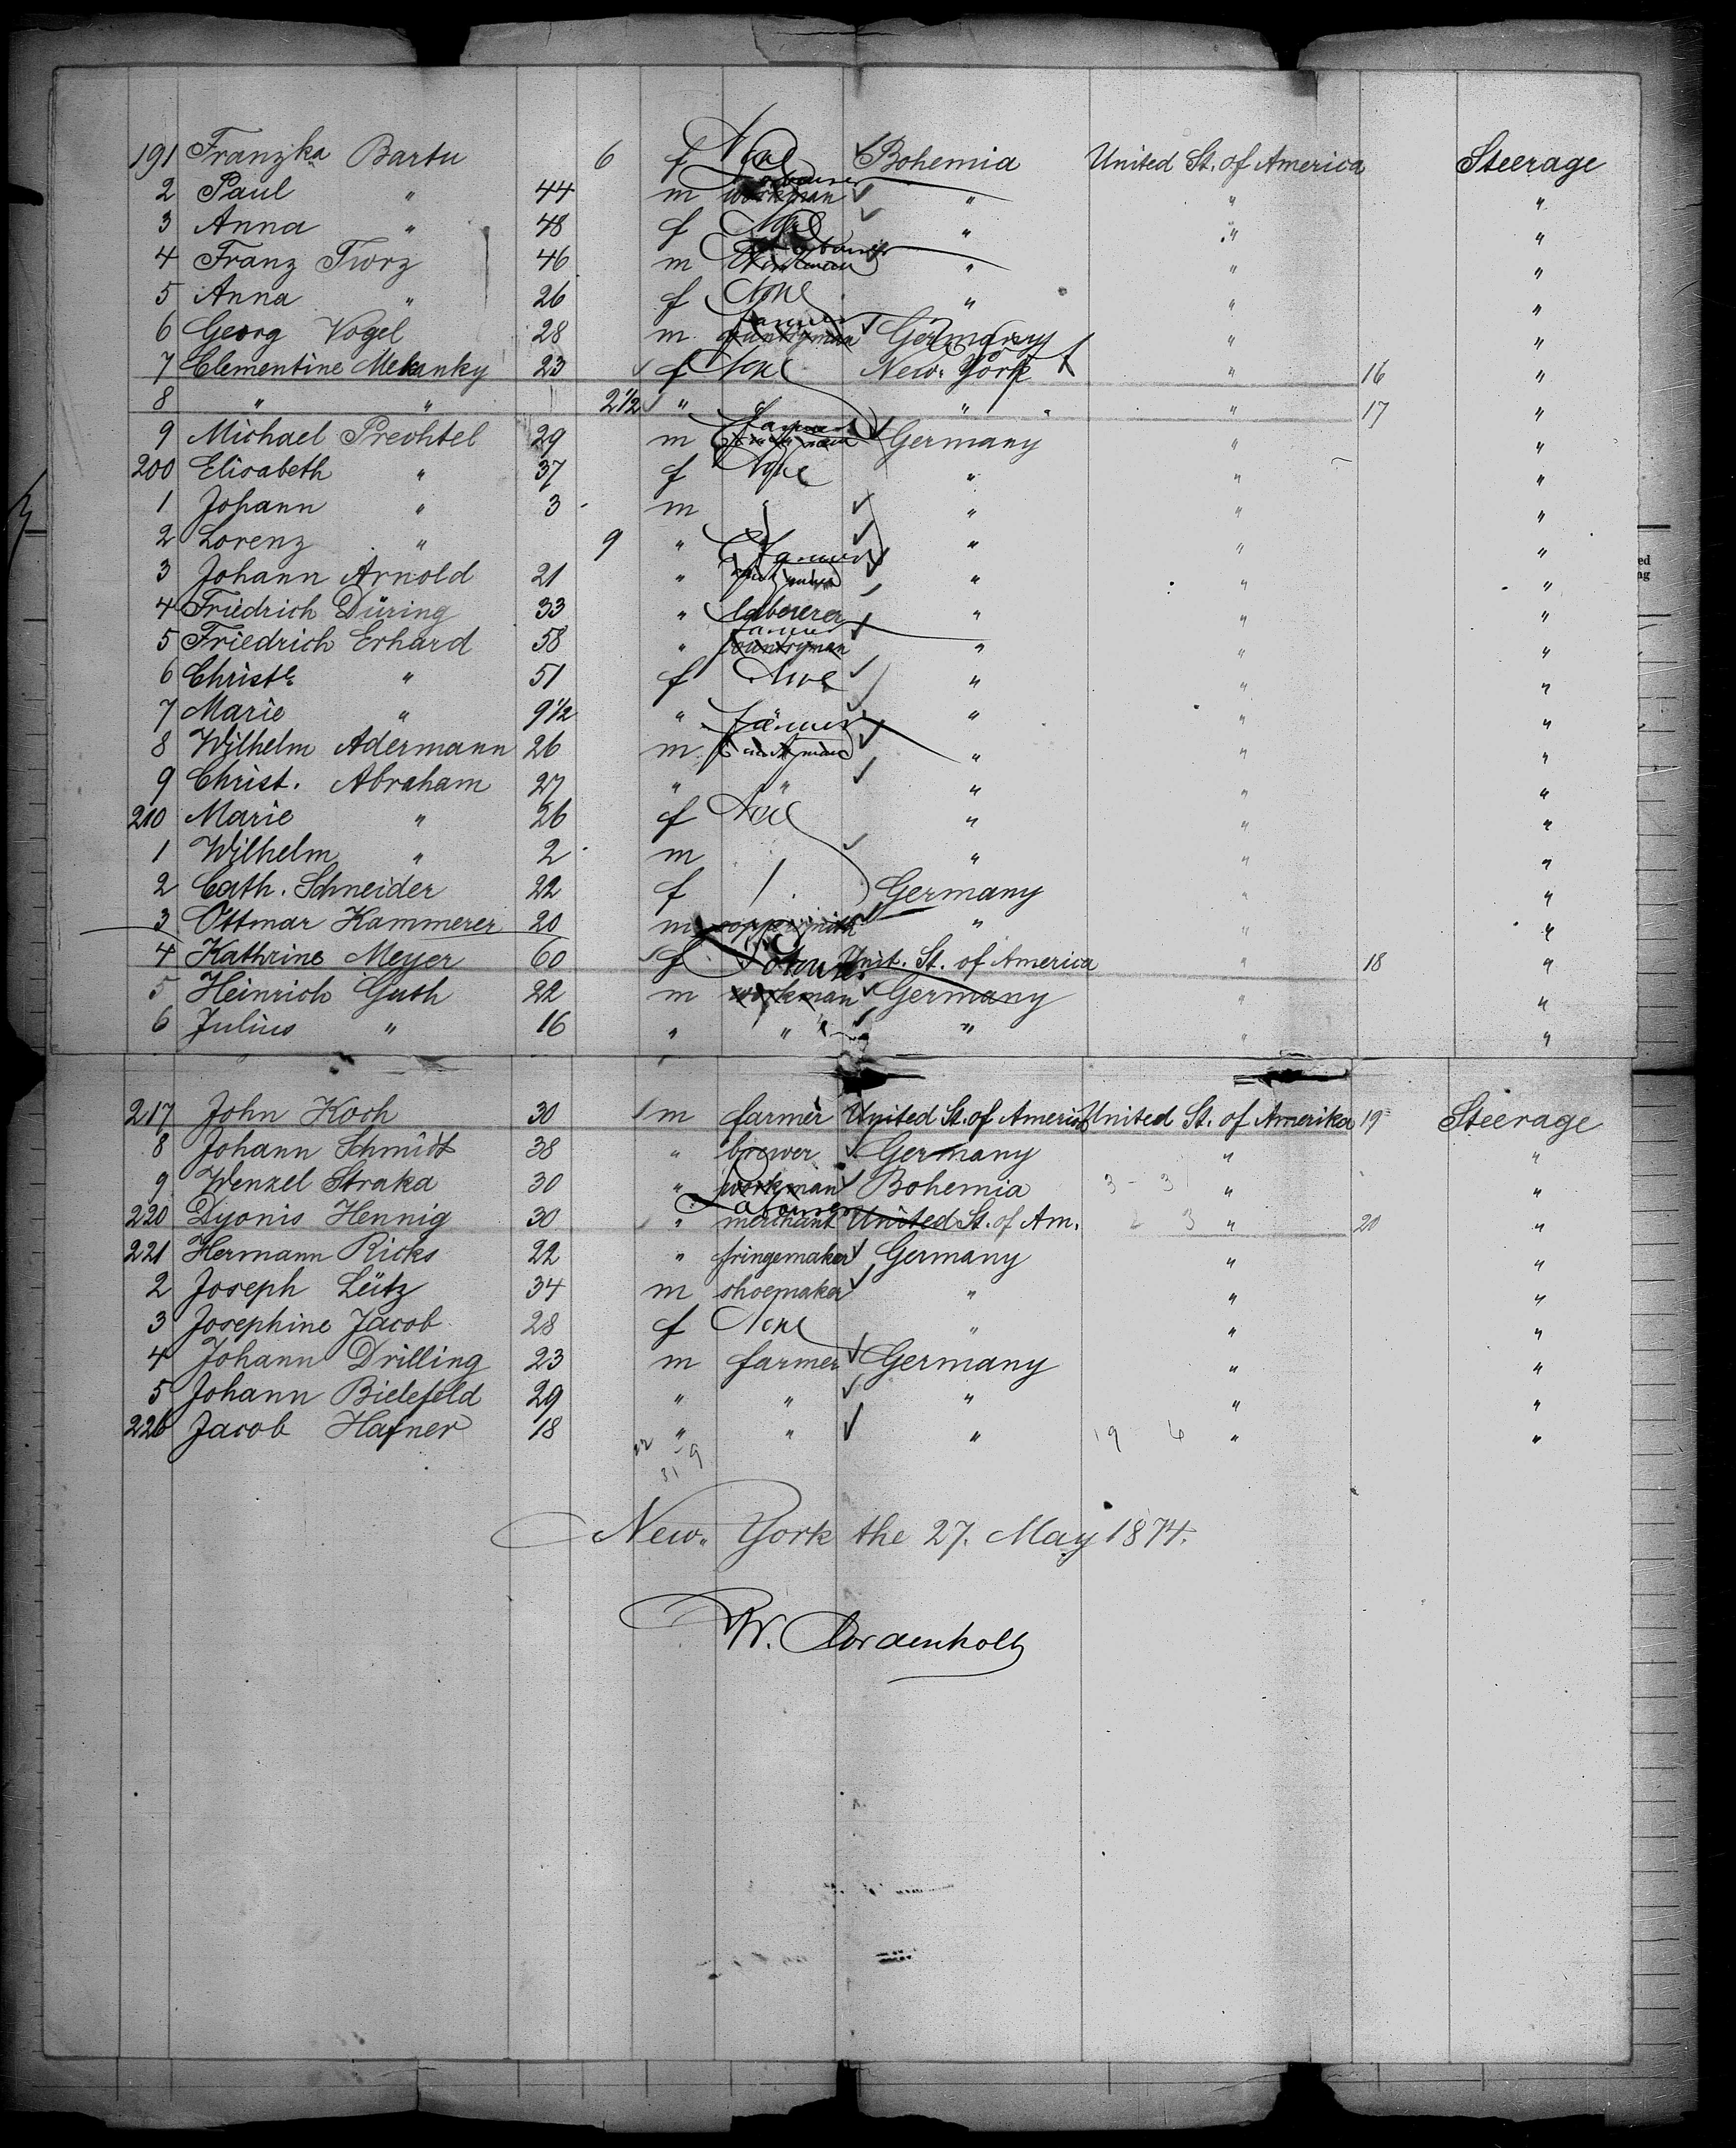 191 Franzka Bartu 6 f None Bohemia United St. of America Steerage
2 Paul " 44 m workman " " "
3 Anna " 48 f None " " "
4 Franz Tworz 46 m " " "
5 Anna " 26 f None " " "
6 Georg Vogel 28 m farmer countryman Germany " "
7 Clementine Mekanky 23 f None New-York " 16 "
8 " " 2 1/2 " " " 17 "
9 Michael Prechtel 29 m farmer Germany " "
200 Elisabeth " 37 f None " " "
1 Johann " 3 m " " "
2 Lorenz " 9 " " " "
3 Johann Arnold 21 " farmer " " "
4 Friedrich Düring 33 " laborerer " " "
5 Friedrich Erhard 58 " farmer countryman " " "
6 Christe " 51 f None " " "
7 Marie " 9 1/2 " " " "
8 Wilhelm Adermann 26 m farmer countryman " " "
9 Christ. Abraham 27 " " " " "
210 Marie " 26 f None " " "
1 Wilhelm " 2 m " " "
2 Cath. Schneider 22 f Germany " "
3 Ottmar Kammerer 20 m coppersmith " " "
4 Kathrine Meyer 60 f Unit. St. of America " 18 "
5 Heinrich Guth 22 m workman Germany " "
6 Julius " 16 " " " " "
217 John Koch 30 m farmer United St. of America United St. of Amerika 19 Steerage
8 Johann Schmidt 38 " brewer Germany " "
9 Wenzel Straka 30 " workman Bohemia 3 - 3 " "
220 Dyonis Hennig 30 " Labourer merchant United St. of Am. 2 3 " 20 "
221 Hermann Ricks 22 " fringemaker Germany " "
2 Joseph Lütz 34 m shoemaker " " "
3 Josephine Jacob 28 f None " " "
4 Johann Drilling 23 m farmer Germany " "
5 Johann Bielefeld 29 " " " " "
226 Jacob Hafner 18 " " " 19 6 " "
31 9
New-York the 27. May 1874.
W.